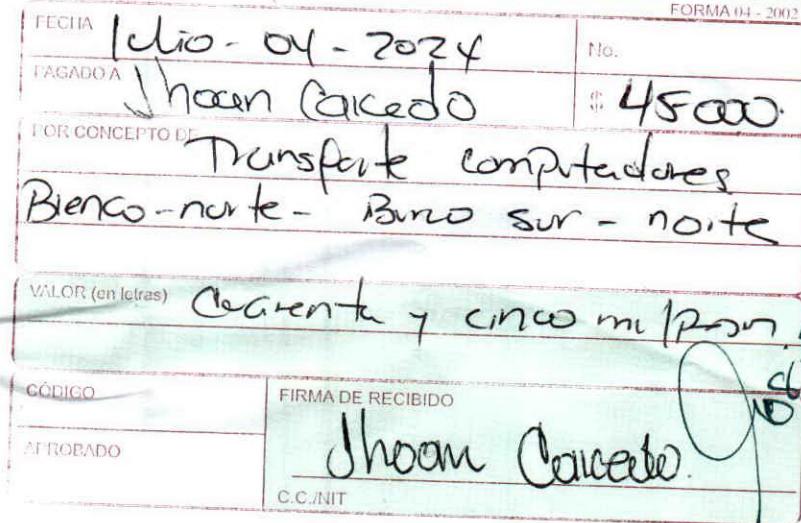 FORMA 04 - 2002
FECHA Julio - 04 - 2024 No.
PAGADO A Jhoan Caicedo $ 45000.
POR CONCEPTO DE Transporte computadores
Bienco - norte - sur - norte
VALOR (en letras) Cuarenta y cinco mil
CÓDIGO
FIRMA DE RECIBIDO
APROBADO
Jhoan Caicedo.
C.C./NIT